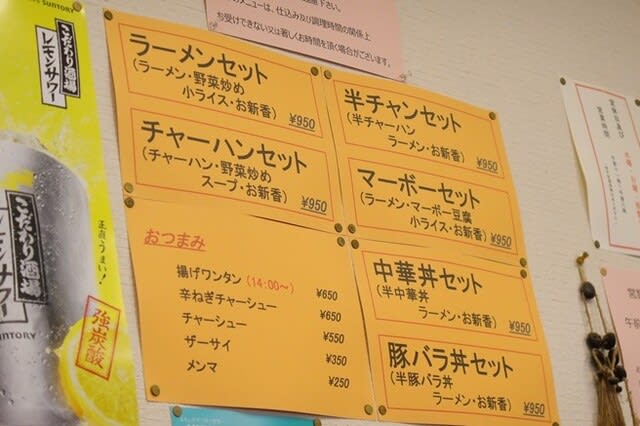 SUNTORY
こだわり酒場
レモンサワー
正直うまい!
こだわり酒場
レモンサワー
SUNTORY
強炭酸
メニューは、仕込み及び調理時間の関係上
お受けできない又は著しくお時間を頂く場合がございます。
ラーメンセット
(ラーメン・野菜炒め
小ライス・お新香)
¥950
チャーハンセット
(チャーハン・野菜炒め
スープ・お新香)
¥950
おつまみ
揚げワンタン(14:00〜) ¥650
辛ねぎチャーシュー ¥650
チャーシュー ¥550
ザーサイ ¥350
メンマ ¥250
半チャンセット
(半チャーハン
ラーメン・お新香)
¥950
マーボーセット
(ラーメン・マーボー豆腐
小ライス・お新香)
¥950
中華丼セット
(半中華丼
ラーメン・お新香)
¥950
豚バラ丼セット
(半豚バラ丼
ラーメン・お新香)
¥950
営業時間